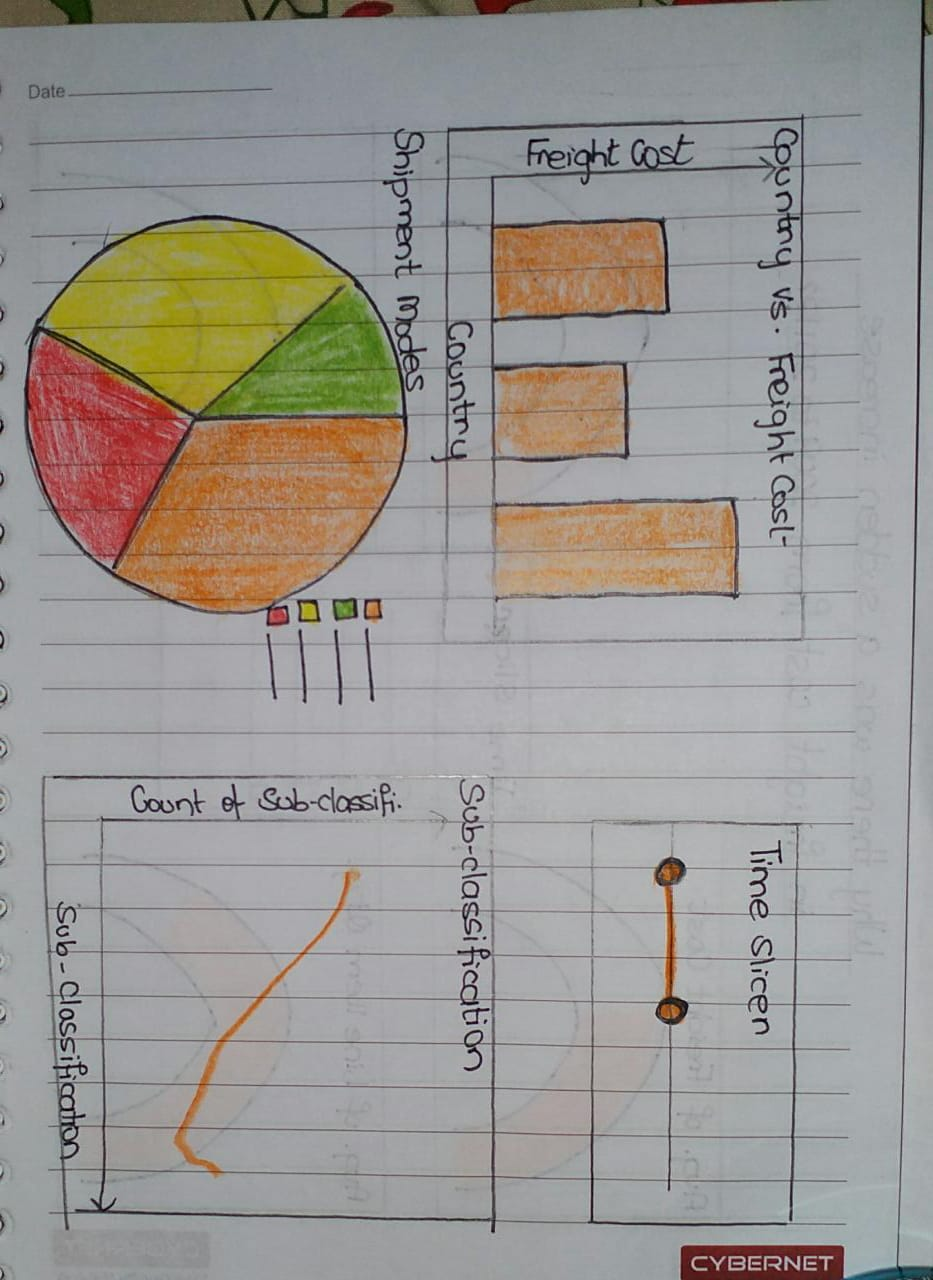 Date
Country vs. Freight Cost
Freight Cost
Country
Shipment Modes
Time Slicer
Sub-classification
Count of Sub-classifi.
Sub-classification
CYBERNET